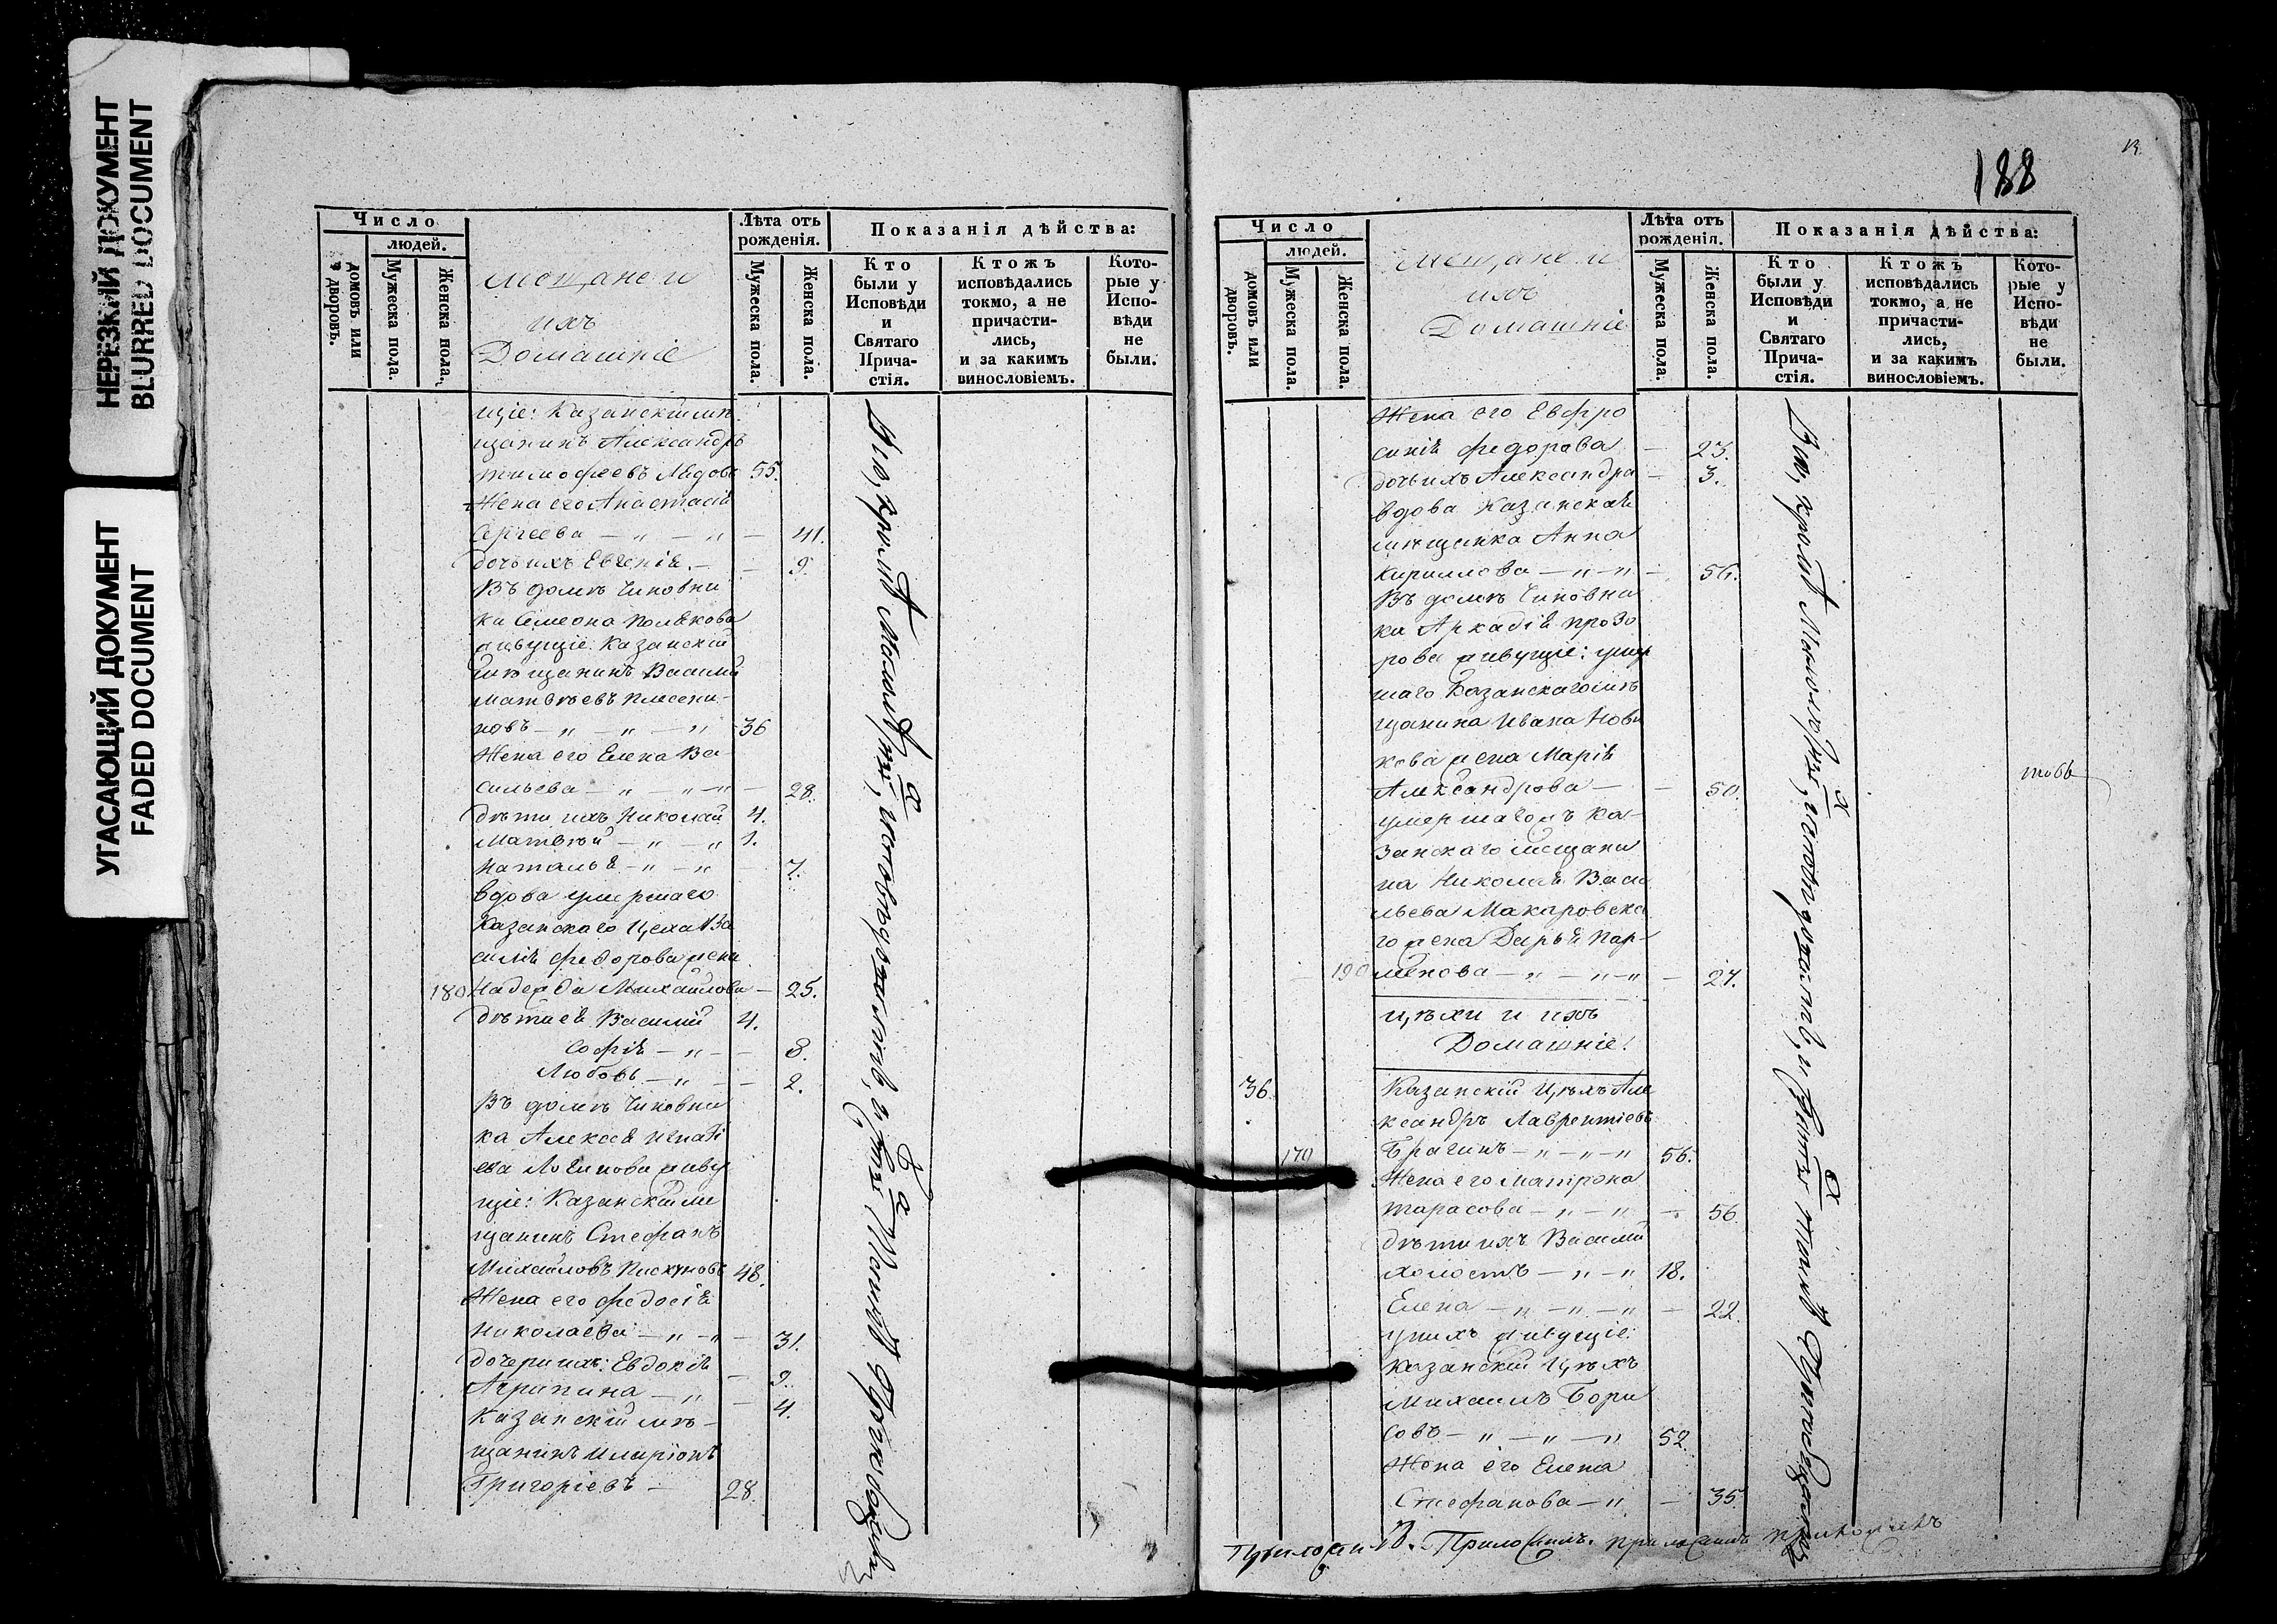 НЕРЕЗКИЙ ДОКУМЕНТ
BLURRED DOCUMENT
УГАСАЮЩИЙ ДОКУМЕНТ
FADED DOCUMENT
Число
людей.
домовъ или дворовъ.
Мужеска пола.
Женска пола.
Мещане и
ихъ
Домашніе
Лѣта отъ рожденія.
Мужеска пола.
Женска пола.
Показанія дѣйства:
Кто были у Исповѣди и Святаго Причастія.
Ктожъ исповѣдались токмо, а не причастились, и за какимъ винословіемъ.
Которые у Исповѣди не были.
щіе: Казанскій мѣ
щанинъ Александръ
Тимофеевъ 55.
Жена его Анастасія
Сергеева — „ — „ — 41.
дочь ихъ Евгенія. — — 9.
Въ домѣ Чиновни
ка Симеона Полякова
живущіе: Казанскій
мѣщанинъ Василій
Матвѣевъ Плесени
новъ — „ — „ — „ 36
Жена его Елена Ва
сильева — „ — „ — 28.
дѣти ихъ Николай 4.
Матвѣй — „ — „ 1.
Наталья — „ — „ — 7.
вдова умершаго
Казанскаго Цеха Ва
силія Федорова жена
180 Надежда Михайлова — 25.
дѣти ея Василій 4.
Софія — „ — 8.
Любовь — „ — 2.
Въ домѣ Чиновни
ка Алексея Игнаті
ева Логинова живу
щіе: Казанскій ме
щанинъ Стефанъ
Михайловъ Пискуновъ 48.
Жена его Федосія
Николаева — „ — 31.
дочери ихъ: Евдокія — 9.
Агрипина — „ — 4.
Казанскій мѣ-
щанинъ Иларіонъ
Григоріевъ — 28.
188
Число
людей.
домовъ или дворовъ.
Мужеска пола.
Женска пола.
Мещане и
ихъ
Домашніе
Лѣта отъ рожденія.
Мужеска пола.
Женска пола.
Показанія дѣйства:
Кто были у Исповѣди и Святаго Причастія.
Ктожъ исповѣдались токмо, а не причастились, и за какимъ винословіемъ.
Которые у Исповѣди не были.
Жена его Евфро
синія Федорова — 23.
дочь ихъ Александра — 3.
вдова Казанская
мѣщанка Анна
Кириллова — „ — „ — 56.
Въ домѣ Чиновни
ка Аркадія Прозо
рова живущіе: умер
шаго Казанскаго мѣ
щанина Ивана Нови
кова жена Марія
Александрова — — 50.
умершаго Ка-
занскаго мещани
на Николая Васи
льева Макаровска
го жена Дарья Пар-
190 менова — „ — „ — 27.
Цѣхи и ихъ
Домашніе:
36. Казанскій Цѣхъ Але
ксандръ Лаврентіевъ
170 Брагинъ — „ — „ — „ 56.
Жена его Матрона
Тарасова — „ — „ — 56.
дѣти ихъ Василій
холостъ — „ — „ 18.
Елена — „ — „ — „ — 22.
у нихъ живущіе:
Казанскій Цѣхъ
Михаилъ Бори
совъ — „ — „ — „ 52.
Жена его Елена
Стефанова — „ — 35.